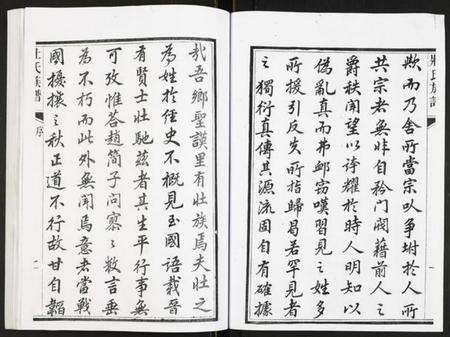 壯氏族譜
欺而乃舍所當宗以爭坿於人所
共宗者無非自矜門閥藉前人之
爵秩聞望以誇耀於時人明知以
偽亂真而弗卹竊嘆習見之姓多
所援引反失所指歸曷若罕見者
之獨衍真傳其源流固自有確據
哉吾鄉聖謨里有壯族焉夫壯之
為姓於経史不概見至國語載晉
有賢士壯馳茲者其生平行事無
可攷惟荅趙簡子問寥〻數言垂
為不朽而此外無聞焉意者當戰
國擾攘之秋正道不行故甘自韜
壯氏族譜
序
一